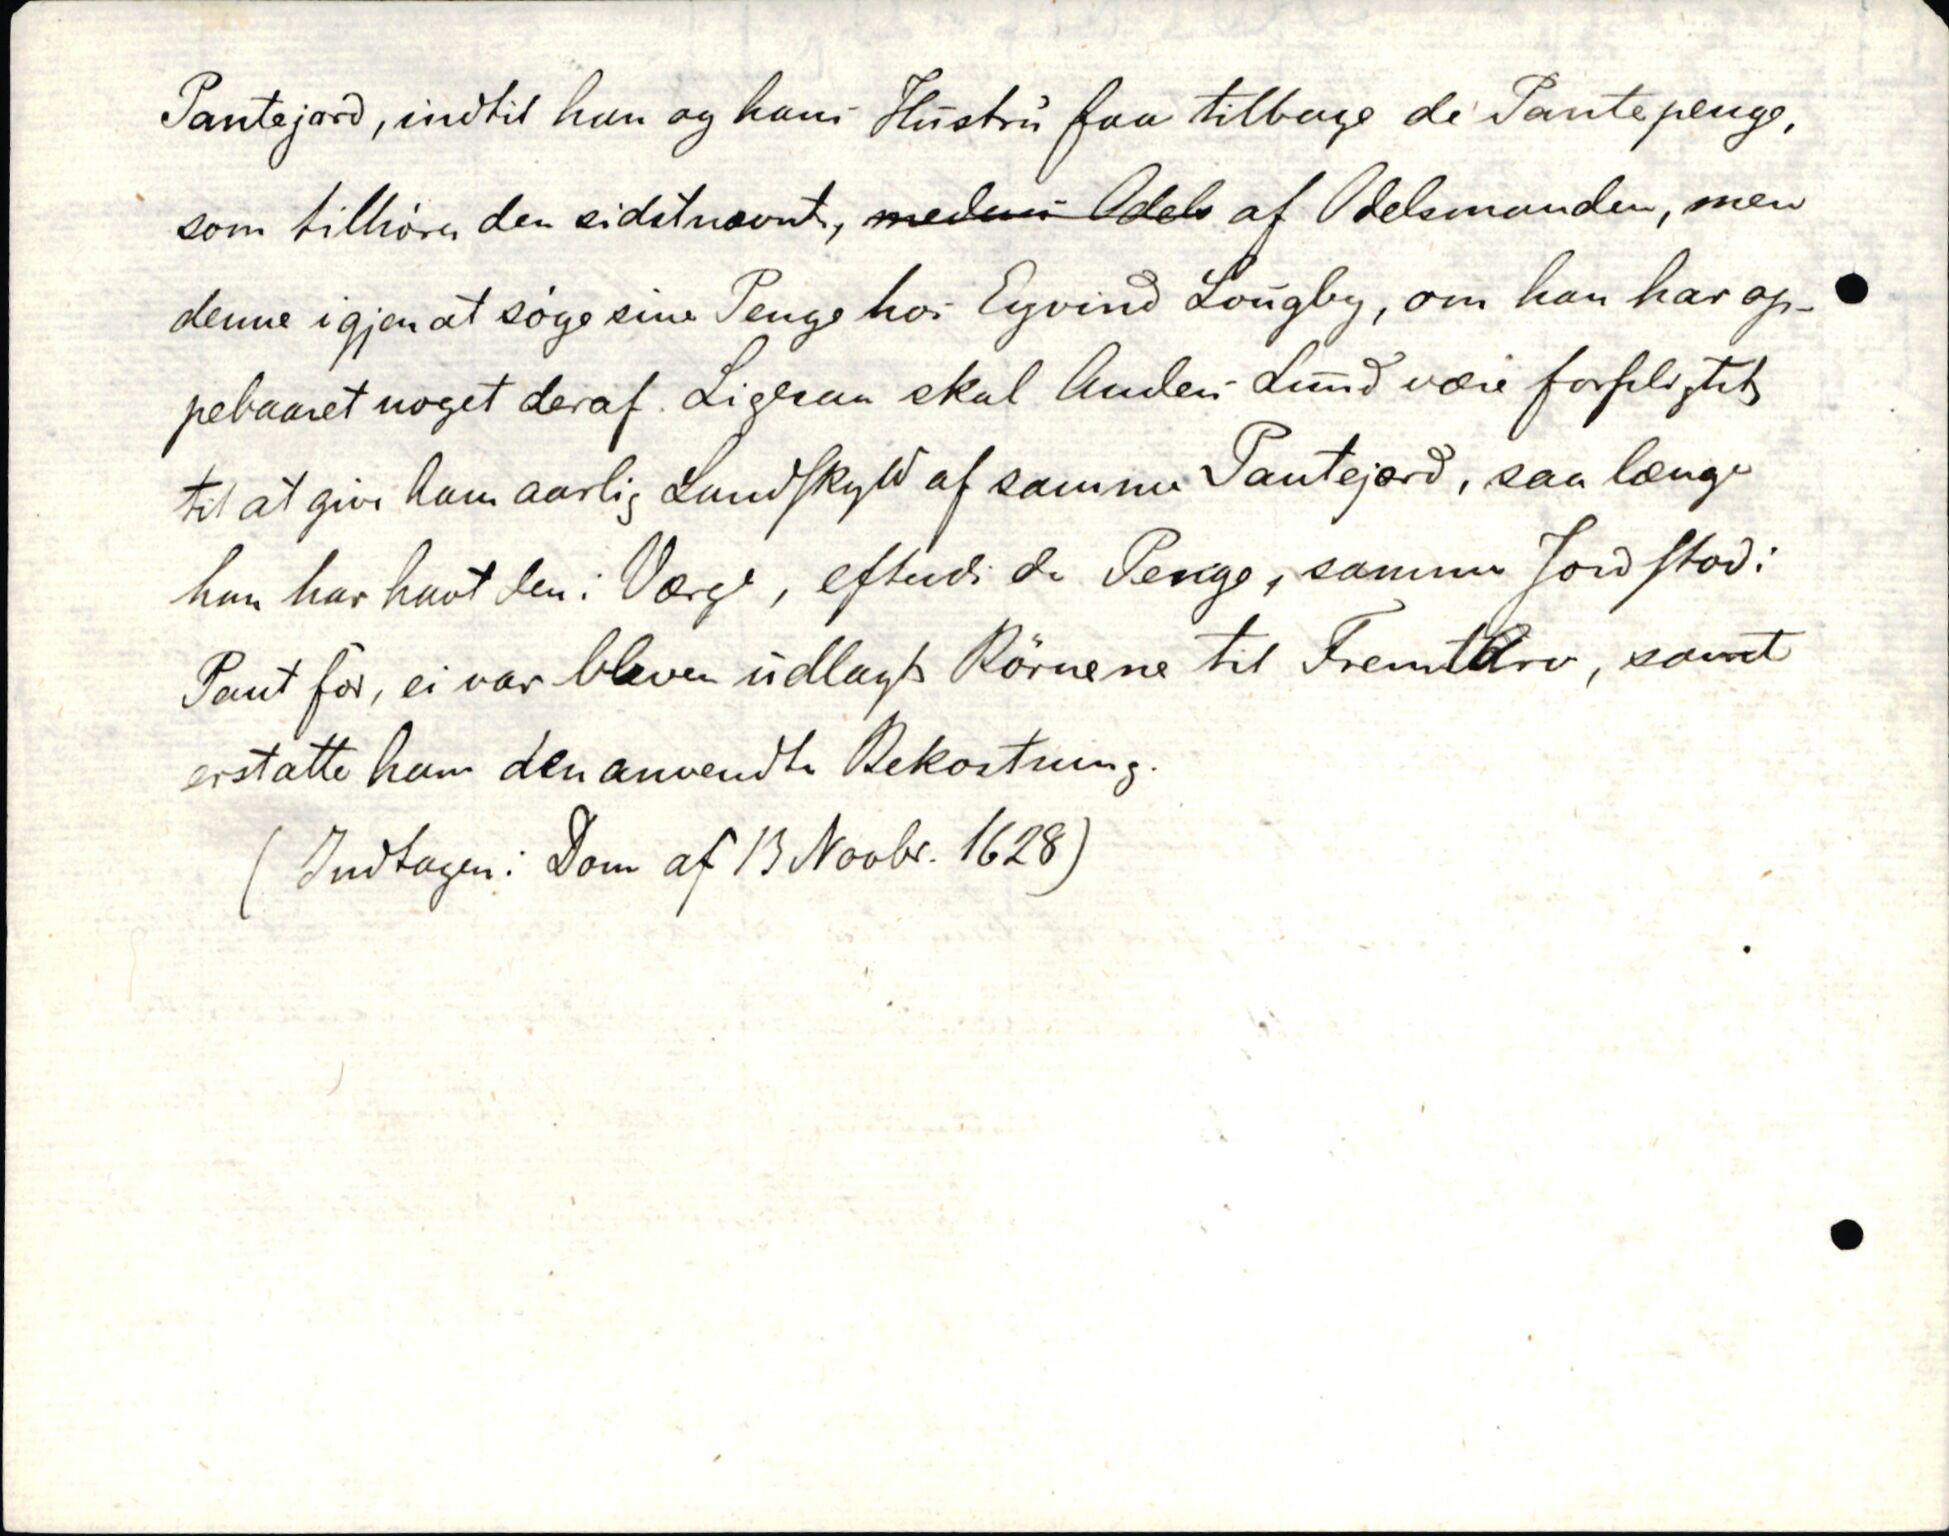 Pantejord, indtil han og hans Hustru faa tilbage de Pantepenge,
som tilhører den sidstnævnte, medens Odels af Odelsmanden, men
denne igjen at søge sine Penge hos Eyvind Lougby, om han har op-
pebaaret noget deraf. Ligesaa skal Anders Lund være forpligtet
til at give ham aarlig Landskyld af samme Pantejord, saa længe
han har havt den i Værge, efterdi de Penge, samme Jord stod i
Pant for, ei var bleven udlagt Börnene til Fremtarv, samt
erstatte ham den anvendte Bekostning.
(Indtagen i Dom af 13 Novbr. 1628)